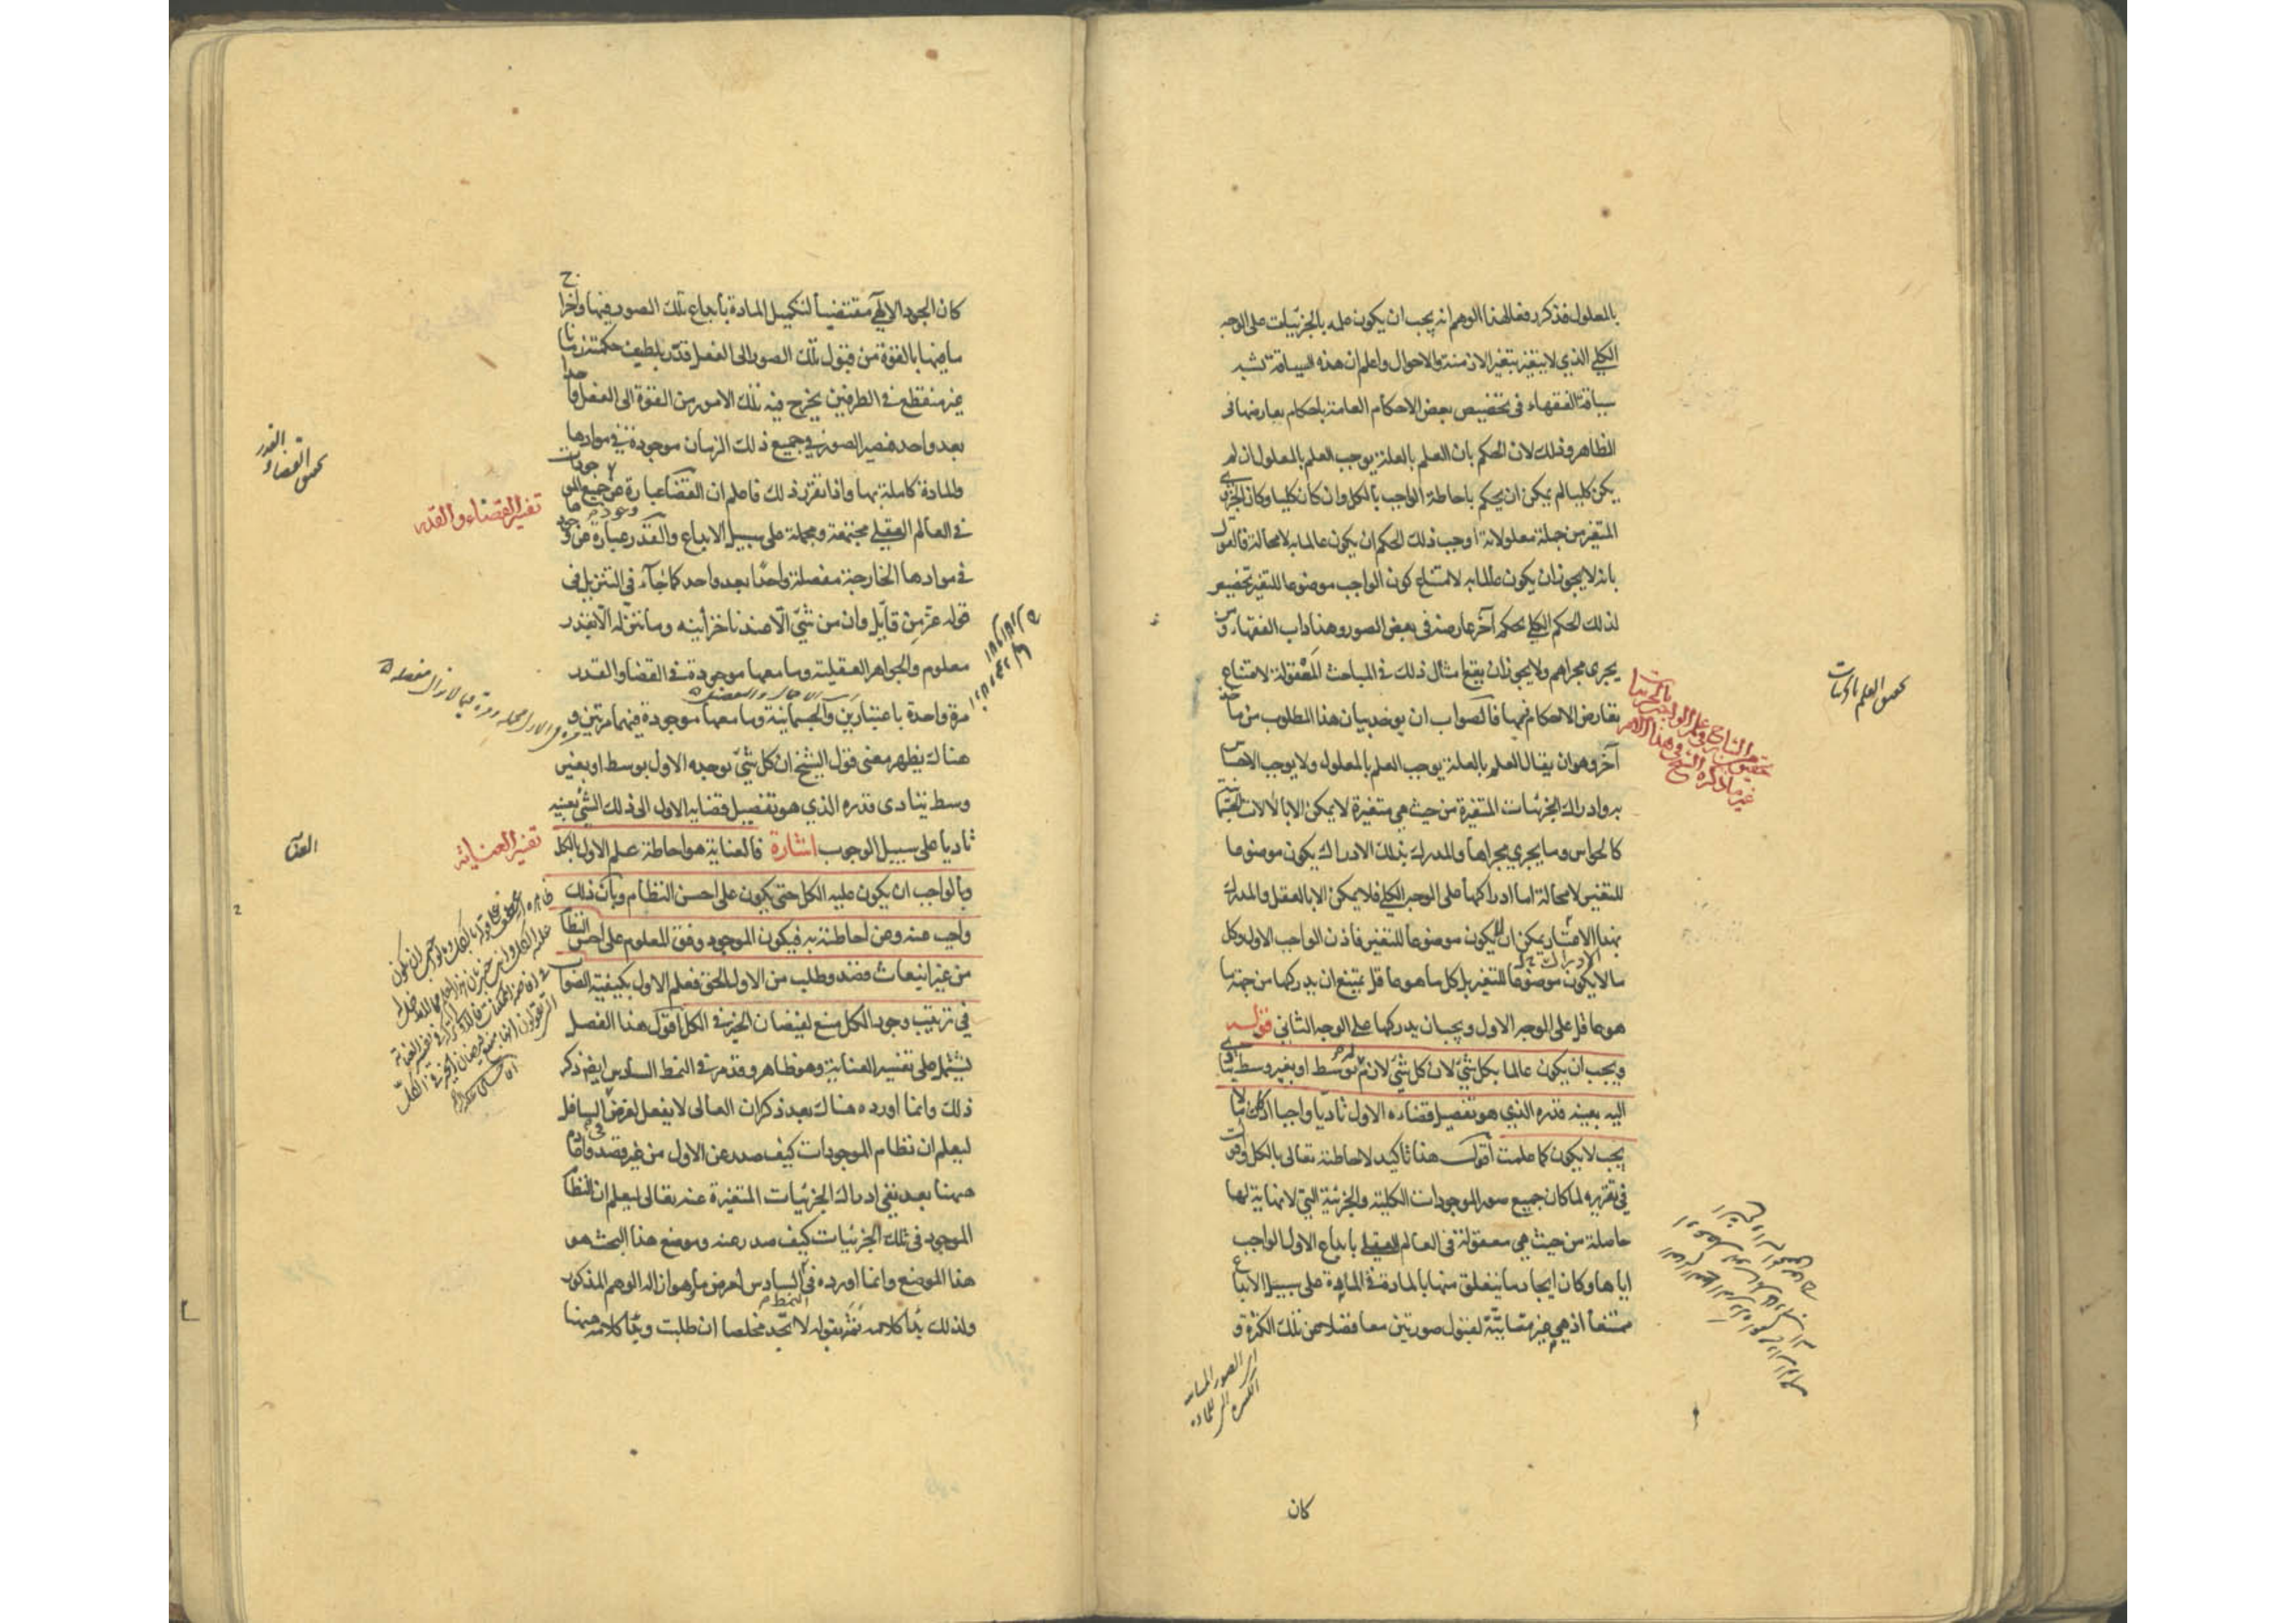 بالمعلول فذكر دفعا لهذا الوهم انه يجب ان يكون علمه بالجزئيات على الوجه
الكلي الذي لا يتغير بتغير الازمنة والاحوال واعلم ان هذه السياقة تشبه
سياقة الفقهاء في تخصيص بعض الاحكام العامة باحكام يعارضها في
الظاهر وذلك لان الحكم بان العلم بالعلة يوجب العلم بالمعلول ان لم
يكن كليا لم يمكن ان يحكم باحاطة الواجب بالكل وان كان كليا وكان الجزئي
المتغير من جملة معلولاته اوجب ذلك الحكم ان يكون عالما به لا محالة فالقول
بانه لا يجوز ان يكون عالما به لامتناع كون الواجب موضوعا للتغير تخصيص
لذلك الحكم الكلي بحكم آخر عارضه في بعض الصور وهذا داب الفقهاء ومن
يجري مجراهم ولا يجوز ان يقع امثال ذلك في المباحث المعقولة لامتناع
تعارض الاحكام فيها فالصواب ان يوخذ بيان هذا المطلوب من ماخذ
آخر وهو ان يقال العلم بالعلة يوجب العلم بالمعلول ولا يوجب الاحساس
به وادراك الجزئيات المتغيرة من حيث هي متغيرة لا يمكن الا بالآلات الجسمانية
كالحواس وما يجري مجراها والمدرك بذلك الادراك يكون موضوعا
للتغير لا محالة اما ادراكها على الوجه الكلي فلا يمكن الا بالعقل والمدرك
بهذا الادراك يمكن ان لا يكون موضوعا للتغير فاذن الواجب الاول وكل
ما لا يكون موضوعا للتغير بل كل ما هو عاقل يمتنع ان يدركها من جهة ما
هو عاقل على الوجه الاول ويجب ان يدركها على الوجه الثاني قوله
ويجب ان يكون عالما بكل شيّ لان كل شيّ لازم له بوسط او بغير وسط يتادى
اليه بعينه قدره الذي هو تفصيل قضاءه الاول تاديا واجبا اذ كان ما لا
يجب لا يكون كما علمت اقول هذا تاكيد لاحاطته تعالى بالكل وقوله
في تقريره لما كان جميع صور الموجودات الكلية والجزئية التي لا نهاية لها
حاصلة من حيث هي معقولة في العالم العقلي بابداع الاول الواجب
اياها وكان ايجاد ما يتعلق منها بالمادة في المادة على سبيل الابداع
ممتنعا اذ هي غير متهيئة لقبول صورتين معا فضلا عن تلك الكثرة و
كان
تحقيق العلم بالجزئيات
كان الجود الالهي مقتضيا لتكميل المادة بابداع تلك الصور فيها واخراج
ما فيها بالقوة من قبول تلك الصور الى الفعل قدر بلطيف حكمته زمانا
غير منقطع في الطرفين يخرج فيه تلك الامور من القوة الى الفعل واحدا
بعد واحد فيصير الصور في جميع ذلك الزمان موجودة في موادها
والمادة كاملة بها واذا تقرر ذلك فاعلم ان القضا عبارة عن وجود جميع الموجودات
في العالم العقلي مجتمعة ومجملة على سبيل الابداع والقدر عبارة عن وجودها
في موادها الخارجية مفصلة واحدا بعد واحد كما جاء في التنزيل في
قوله عز من قايل وان من شيّ الا عندنا خزائنه وما ننزله الا بقدر
معلوم والجواهر العقلية وما معها موجودة في القضا والقدر
مرة واحدة باعتبارين والجسمانية وما معها موجودة فيهما مرتين و
هناك يظهر معنى قول الشيخ ان كل شيّ يوجبه الاول بوسط او بغير
وسط يتادى قدره الذي هو تفصيل قضايه الاول الى ذلك الشيّ بعينه
تاديا على سبيل الوجوب اشارة فالعناية هو احاطة علم الاول بالكل
وبالواجب ان يكون عليه الكل حتى يكون على احسن النظام وبان ذلك
واجب عنه وعن احاطته به فيكون الموجود وفق المعلوم على احسن النظام
من غير انبعاث قصد وطلب من الاول الحق فعلم الاول بكيفية الصواب
في ترتيب وجود الكل منبع لفيضان الخير في الكل اقول هذا الفصل
يشتمل على تفسير العناية وهو ظاهر وقد مر في النمط السادس ايضا ذكر
ذلك وانما اورده هناك بعد ذكر ان العالى لا يفعل لغرض في السافل
ليعلم ان نظام الموجودات كيف صدر عن الاول من غير قصد واما
ههنا بعد نفي ادراك الجزئيات المتغيرة عنه تعالى ليعلم ان النظام
الموجود في تلك الجزئيات كيف صدر عنه وموضع هذا البحث هو
هذا الموضع وانما اورده في النمط السادس لغرض ما وهو ازالة الوهم المذكور
ولذلك بدا كلامه ثمه بقوله لا تجد مخلصا ان طلبت وبدا كلامه ههنا
تفسير القضاء والقدر
تفسير العناية
تحقيق القضاء والقدر